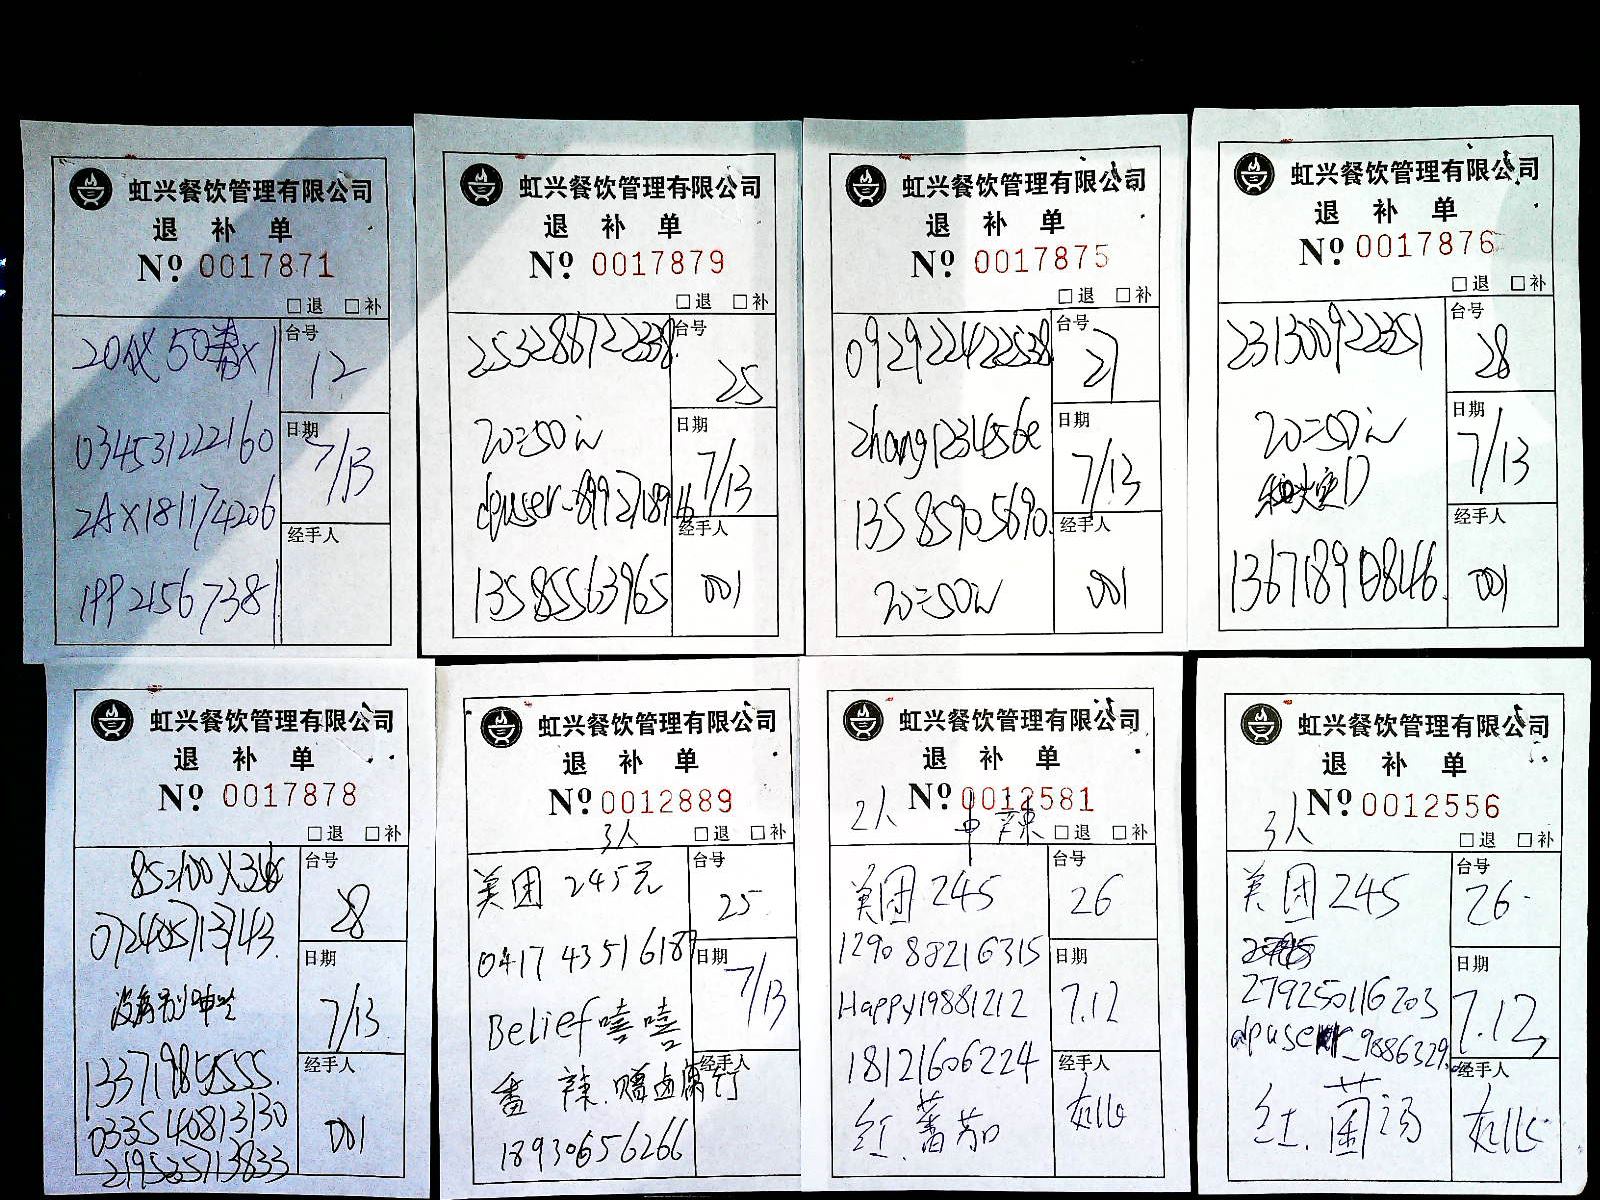 虹兴餐饮管理有限公司
退 补 单
Nº 0017871
□退 □补
20代50券x1
台号
12
034531222160
日期
7/13
2AX181174206
经手人
19921567381
虹兴餐饮管理有限公司
退 补 单
Nº 0017879
□退 □补
253286722338
台号
25
20=50
日期
7/13
dpuser_69927189
经手人
13585563965
001
虹兴餐饮管理有限公司
退 补 单
Nº 0017875
□退 □补
092922422528
台号
27
zhang123456e
日期
7/13
13585905690
经手人
20=50
001
虹兴餐饮管理有限公司
退 补 单
Nº 0017876
□退 □补
231300922351
台号
28
20=50
日期
7/13
经手人
13671890846
001
虹兴餐饮管理有限公司
退 补 单
Nº 0017878
□退 □补
85=100X3
台号
28
072485713743
日期
没病别呻吟
7/13
13371985555
经手人
033540813130
001
219535713833
虹兴餐饮管理有限公司
退 补 单
Nº 0012889
3人
□退 □补
美团 245元
台号
25
041743516187
日期
7/13
Belief嘻嘻
经手人
番 辣.赠卤腐竹
18930656266
虹兴餐饮管理有限公司
退 补 单
Nº 0012581
2人
中辣
□退 □补
美团 245
台号
26
129088216315
日期
Happy19881212
7.12
18121606224
经手人
红.蕃茄
虹兴餐饮管理有限公司
退 补 单
Nº 0012556
3人
□退 □补
美团 245
台号
26
279250116203
日期
7.12
dpuser_9886329
经手人
红.菌汤